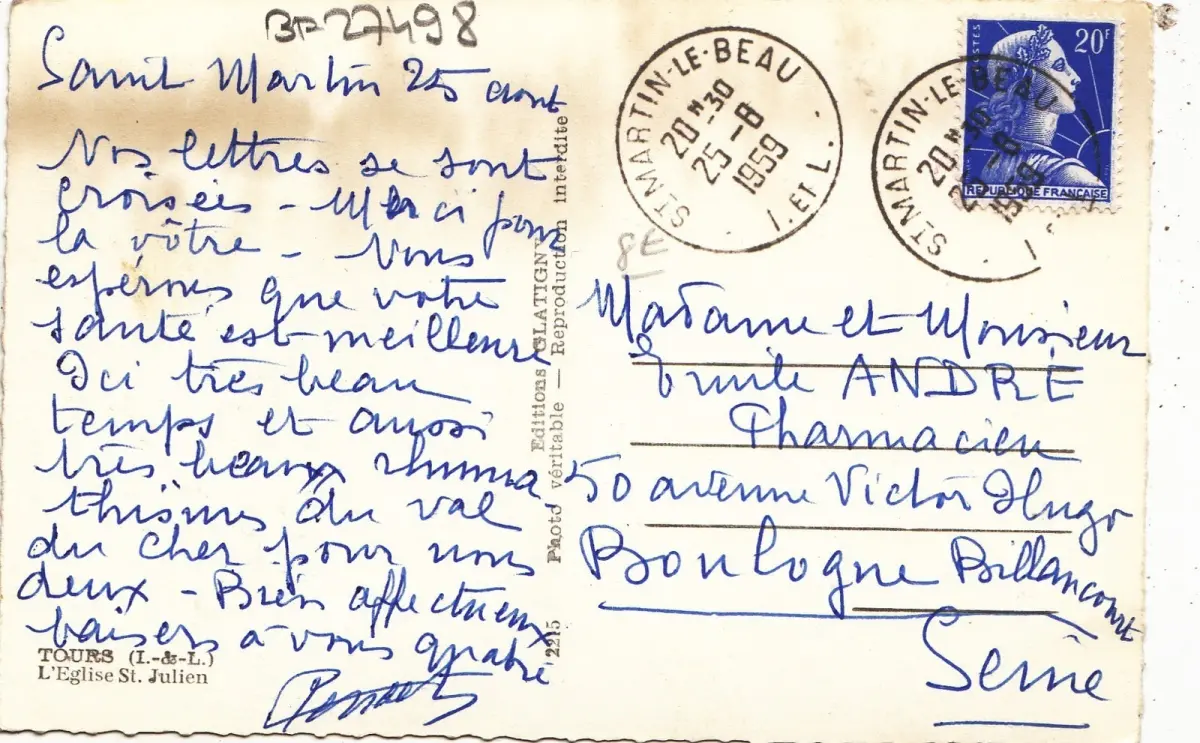 BP 27498
Saint Martin 25 aout
Nos lettres se sont
croisées - Merci pour
la vôtre - Nous
espérons que votre
santé est meilleure
Ici très beau
temps et aussi
très beaux rhuma
thismes du val
du Cher pour nous
deux - Bien affectueux
baisers à vous quatre
TOURS (I.-&-L.)
L'Eglise St. Julien
2215
Editions GLATIGNY
Photo véritable — Reproduction interdite
ST MARTIN-LE-BEAU
20 H 30
25 -8
1959
I. ET L.
ST MARTIN-LE-BEAU
20 H 30
25 -8
1959
I
POSTES
20F
REPUBLIQUE FRANÇAISE
8E
Madame et Monsieur
Emile ANDRÉ
Pharmacien
50 avenue Victor Hugo
Boulogne Billancourt
Seine